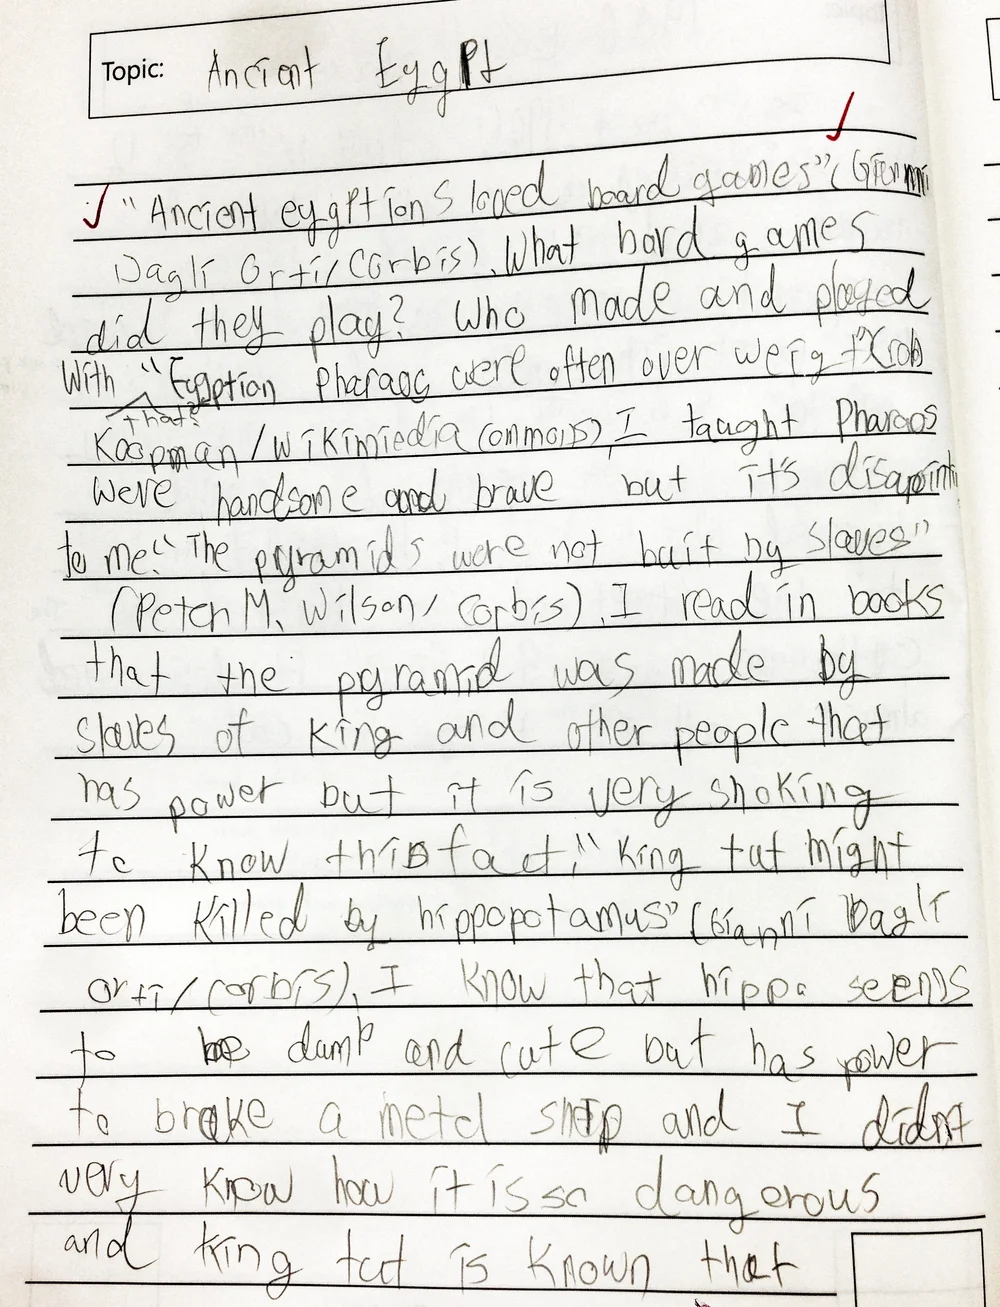 Topic: Ancient Eygpt
"Ancient eygptions loved board games" (Gianni
Dagli Orti/Corbis). What bord games
did they play? Who made and played
with that? "Egyption Pharaos were often over weigt" (Rob
Koopman/Wikimiedia Commons), I taught Pharaos
were handsome and brave but it's disapointi
to me. "The pyramids were not buit by slaves"
(Peter M. Wilson/Corbis). I read in books
that the pyramid was made by
slaves of King and other people that
has power but it is very shoking
to know this fact. "King tut might
been killed by hippopotamus" (Gianni Dagli
orti/corbis), I know that hippo seems
to be dump and cute but has power
to brake a metel ship and I didn't
very know how it is so dangerous
and king tut is known that